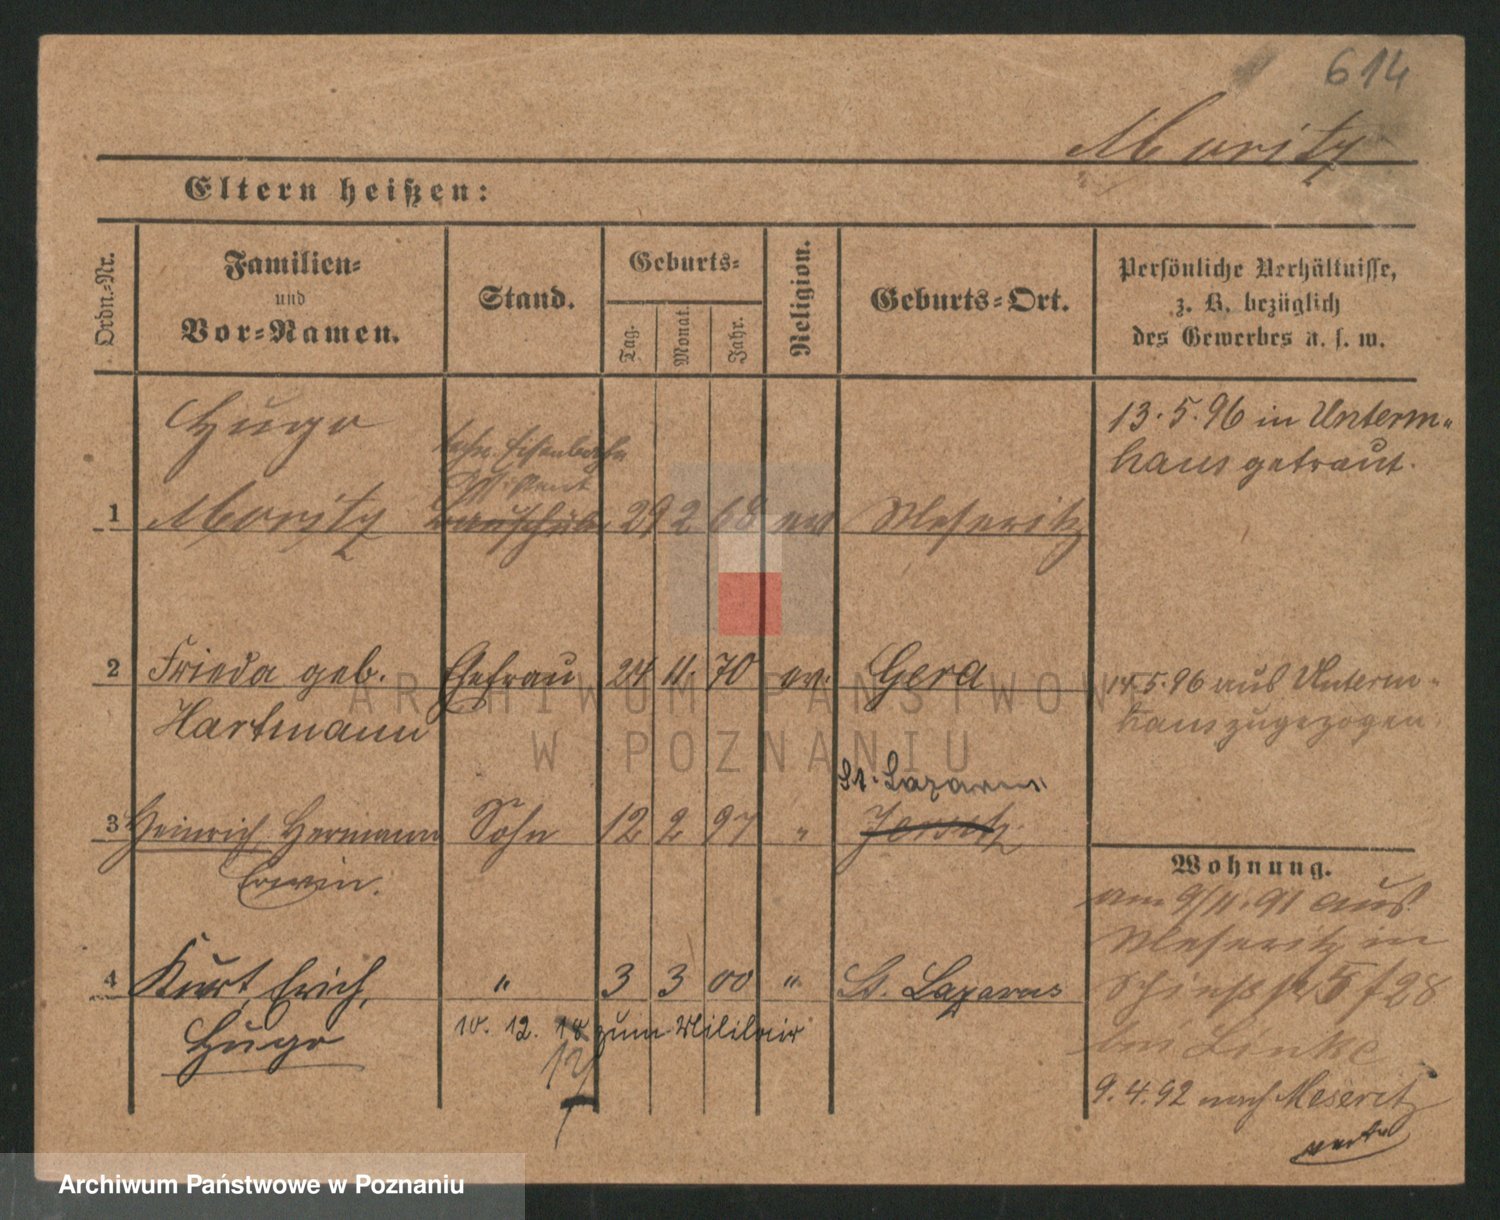 614
Moritz
Eltern heißen:
Ordn.-Nr.
Familien-
und
Vor-Namen.
Stand.
Geburts-
Tag.
Monat.
Jahr.
Religion.
Geburts-Ort.
Persönliche Verhältnisse,
z. B. bezüglich
des Gewerbes u. s. w.
Hugo
1 Moritz 29 2 68 ev Meseritz
13.5.96 in Unterm-
haus getraut.
2 Frieda geb. Ehefrau 24 11. 70 ev. Gera
Hartmann
14.5.96 aus Unterm-
haus zugezogen.
St. Lazarus
3 Heinrich Hermann Sohn 12 2 97 " Jersitz
Erwin.
4 Kurt, Erich, " 3 3 00 " St. Lazarus
Hugo
10. 12. 18 zum Militair
17
Wohnung.
am 9/11.91 aus
Meseritz in
28
bei Linke
9.4.92 nach Meseritz
ARCHIWUM PAŃSTWOWE
W POZNANIU
Archiwum Państwowe w Poznaniu